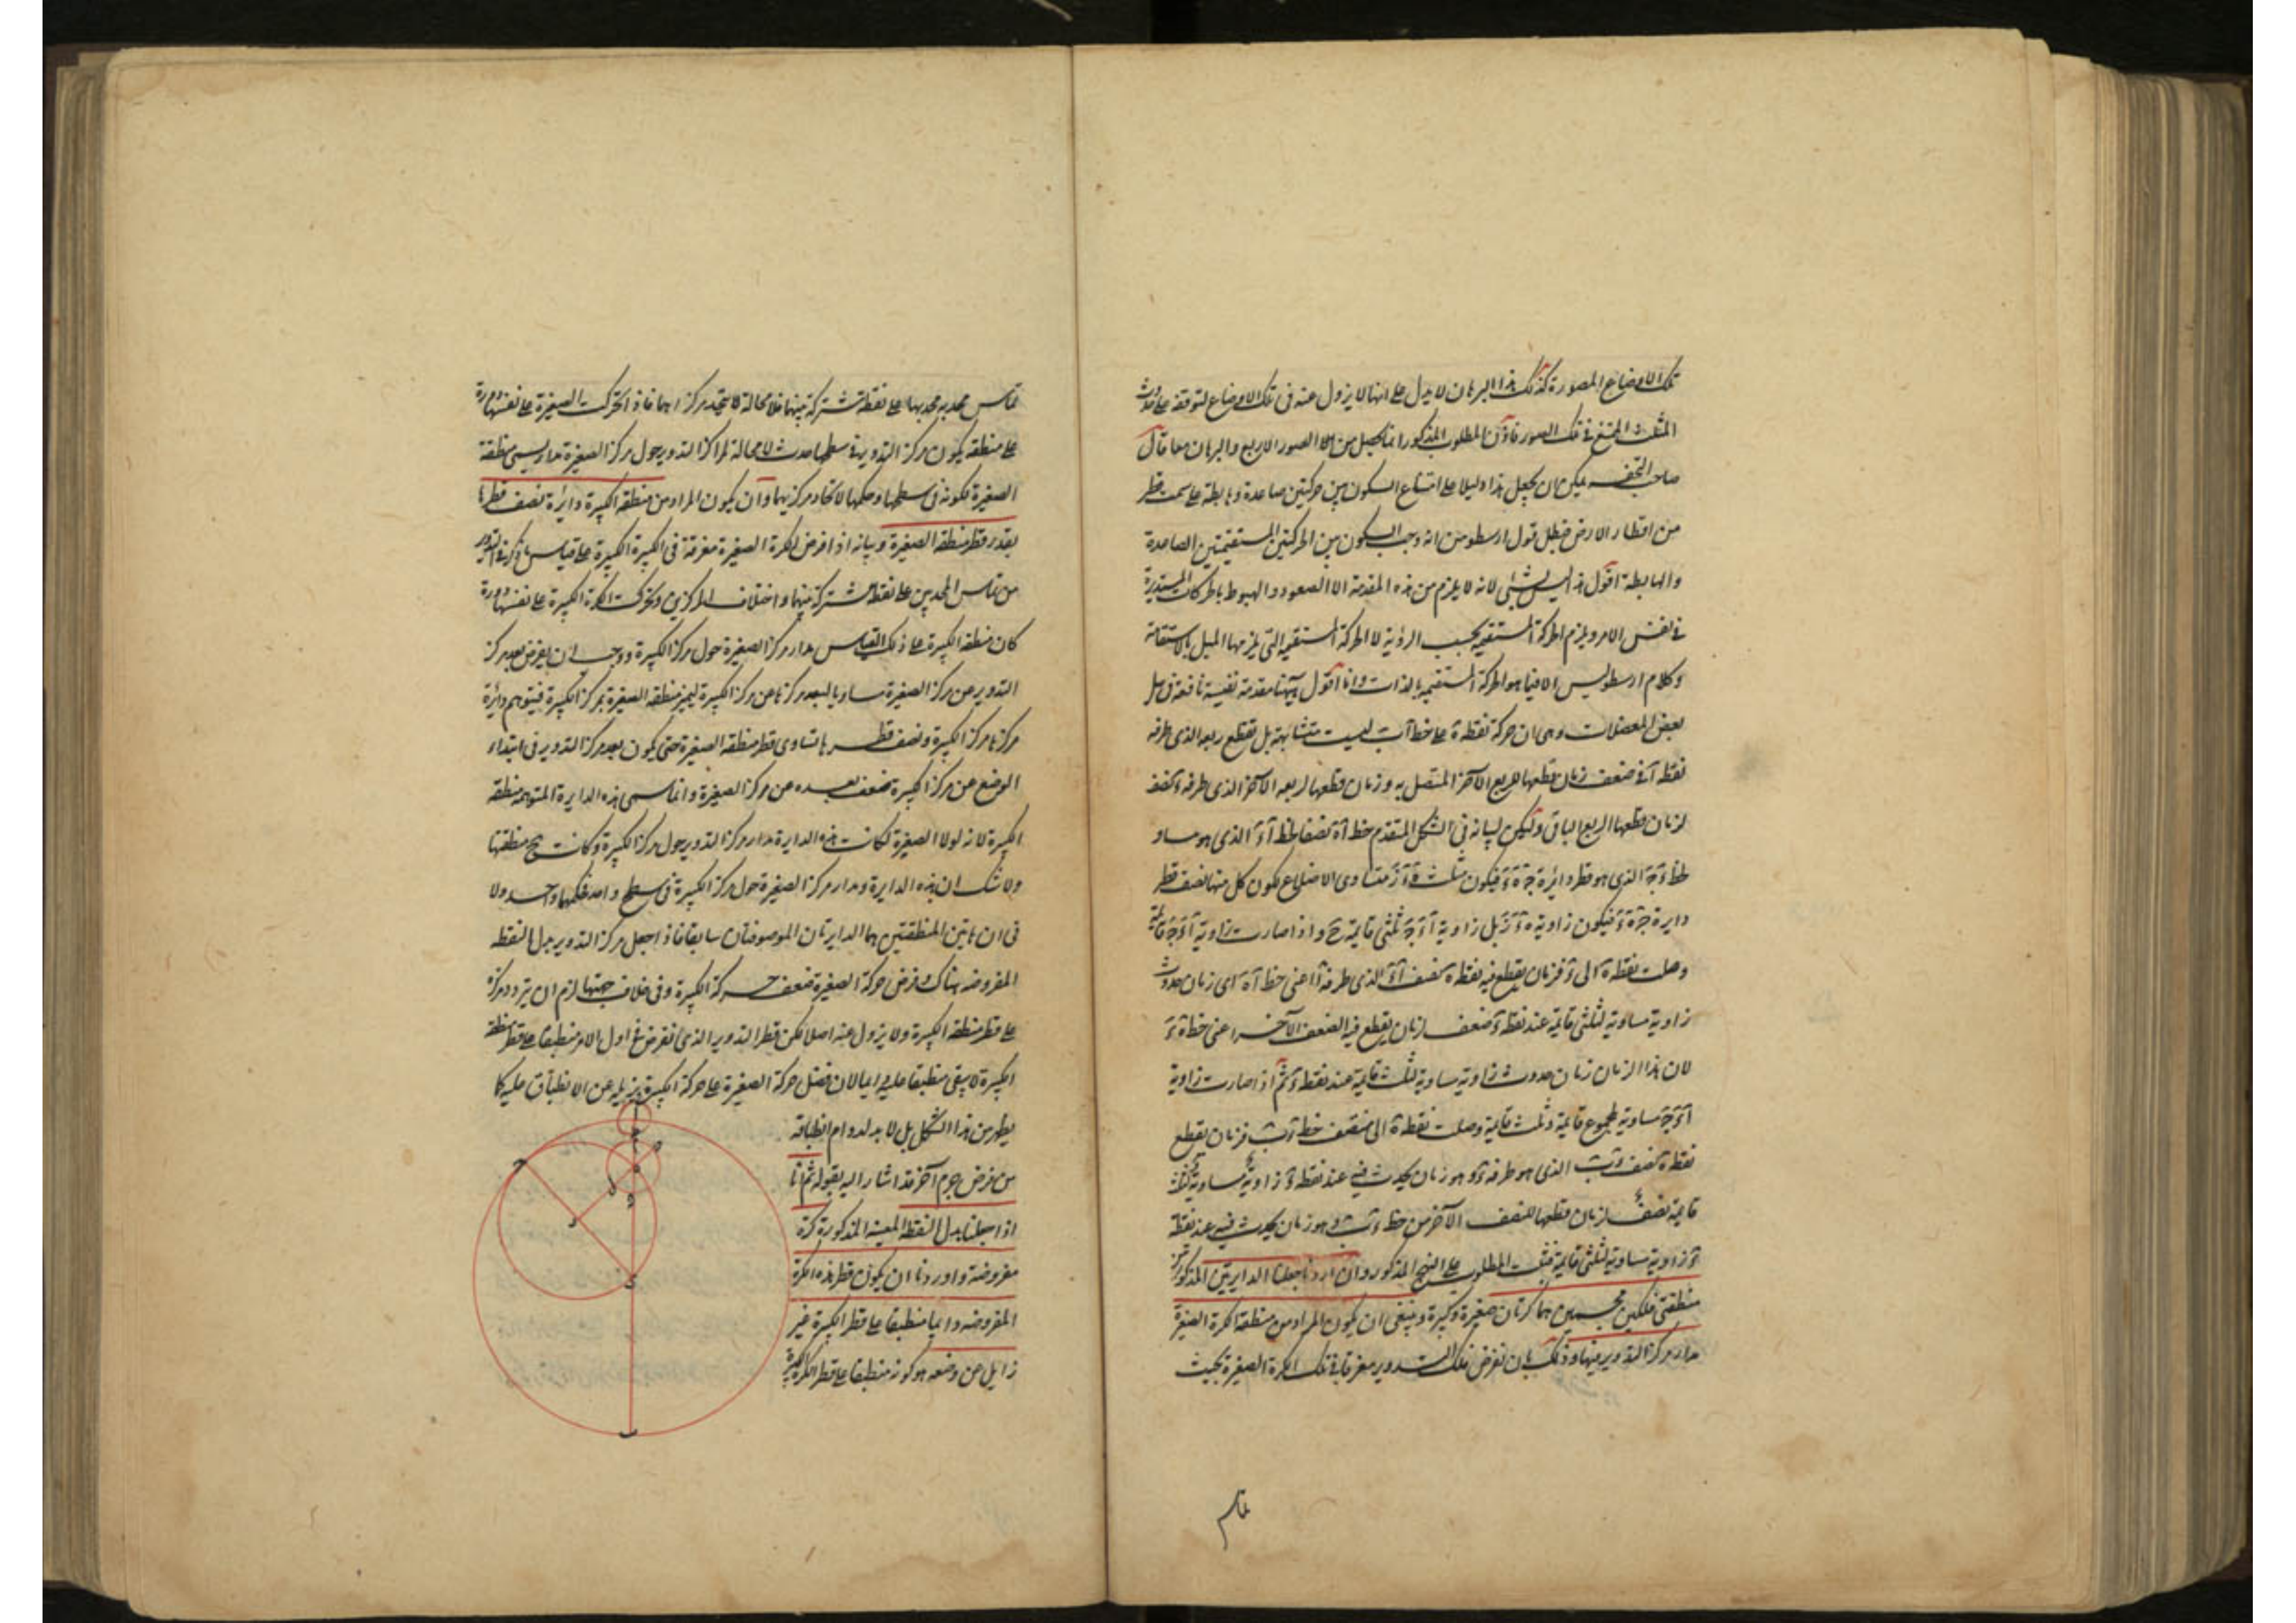 تلك الاوضاع المصورة كذلك هذا البرهان لا يدل على انها لا يزول عنه فى تلك الاوضاع لتوقفه على حدوث
المثلث الممتنع فى تلك الصور فاذن المطلوب المذكور انما يحصل من الصور الاربع والبرهان معا قال
صاحب التحفه يمكن ان يجعل هذا دليلا على امتناع السكون بين حركتين صاعدة وهابطة على سمت قطر
من اقطار الارض فبطل قول ارسطو من انه وجب السكون بين الحركتين المستقيمتين الصاعدة
والهابطة اقول هذا ليس بشئ لانه لا يلزم من هذه المقدمة الا الصعود والهبوط بالحركات المستديرة
فى نفس الامر ويلزم الحركة المستقيمة بحسب الرؤية لا الحركة المستقيمة التى يلزمها الميل بالاستقامة
وكلام ارسطو ليس الا فيما هو الحركة المستقيمة بالذات وانا اقول ههنا مقدمة نفيسة نافعة فى حل
بعض المعضلات وهى ان حركة نقطة ه على خط اب ليست متشابهة بل تقطع ربعه الذى طرفه
نقطة ا فى ضعف زمان قطعها للربع الآخر المتصل به وزمان قطعها لربعه الآخر الذى طرفه
لزمان قطعها الربع الباقى وليكن لبيانه فى الشكل المتقدم خط اه نصفا لخط اء الذى هو مساو
لخط ء ج الذى هو قطر دائرة ج ه ء فيكون مثلث متساوى الاضلاع لكون كل منها نصف قطر
دايرة ج ه ء فيكون زاوية ه ء ز بل زاوية ا ء ج ثلثى قايمة ح واذا صارت زاوية ا ء ج قايمة
وصلت نقطة ه الى ء فزمان يقطع فيه نقطة ه نصف اء الذى طرفه ا اعنى خط اه اى زمان حدوث
زاوية مساوية لثلثى قايمة عند نقطة ء ضعف لزمان يقطع فيه النصف الآخر اعنى خط ه ء
لان هذا الزمان زمان حدوث زاوية مساوية لثلث قايمة عند نقطة ء ثم اذا صارت زاوية
ا ء ج مساوية لمجموع قايمة وثلث قايمة وصلت نقطة ه الى منتصف خط ء ب فزمان يقطع
نقطة ه نصف ء ب الذى هو طرفه ء وهو زمان يحدث فيه عند نقطة ء زاوية مساوية لثلث
قايمة نصف لزمان قطعها للنصف الآخر من خط ء ب وهو زمان يحدث فيه عند نقطة
ء زاوية مساوية لثلثى قايمة فثبت المطلوب على النهج المذكور وان اردنا جعلنا الدايرتين المذكورتين
منطقتى فلكين مجسمين هما كرتان صغيرة وكبيرة وينبغى ان يكون المراد من منطقة الكرة الصغيرة
مدار مركز التدوير منها وذلك بان نفرض فلك التدوير مغرقا فى تلك الكرة الصغيرة بحيث
تماس
تماس محدبه محدبها على نقطة مشتركة بينهما فلا محالة لا يتحد مركزاهما فاذا تحركت الصغيرة على نفسها دورة
على منطقة يكون مركز التدوير فى سطحها حدث لا محالة لمركز التدوير حول مركز الصغيرة مدار ويسمى منطقة
الصغيرة لكونه فى سطحها وحكمها لاتحاد مركزيهما وان يكون المراد من منطقة الكبيرة دايرة نصف قطرها
بقدر قطر منطقة الصغيرة وبيانه اذا فرض الكرة الصغيرة مغرقة فى الكبيرة على قياس ما ذكر فى التدوير
من تماس المحدبين على نقطة مشتركة بينهما واختلاف المركزين وتحركت الكرة الكبيرة على نفسها دورة
كان منطقة الكبيرة على ذلك القياس مدار مركز الصغيرة حول مركز الكبيرة ووجب ان يفرض بعد مركز
التدوير عن مركز الصغيرة مساويا لبعد مركزها عن مركز الكبيرة ليمر منطقة الصغيرة بمركز الكبيرة فيتوهم دائرة
مركزها مركز الكبيرة ونصف قطرها تساوى قطر منطقة الصغيرة حتى يكون بعد مركز التدوير فى ابتداء
الوضع عن مركز الكبيرة ضعف بعده عن مركز الصغيرة وانما سمى هذه الدايرة المتوهمة منطقة
الكبيرة لانه لولا الصغيرة لكانت هذه الدايرة مدار مركز التدوير حول مركز الكبيرة وكانت ح منطقتها
ولا شك ان هذه الدايرة ومدار مركز الصغيرة حول مركز الكبيرة فى سطح واحد فحكمهما واحد ولا
فى ان هاتين المنطقتين هما الدايرتان الموصوفتان سابقا فاذا جعل مركز التدوير بدل النقطة
المفروضة هناك وفرض حركة الصغيرة ضعف حركة الكبيرة وفى خلاف جهتها لزم ان يتردد مركزه
على قطر منطقة الكبيرة ولا يزول عنه اصلا لكن قطر التدوير الذى نفرض فى اول الامر منطبقا على قطر منطقة
الكبيرة لا يبقى منطبقا عليه دايما لان فضل حركة الصغيرة على حركة الكبيرة يزيله عن الانطباق عليه كما
يظهر من هذا الشكل بل لا بد لدوام انطباقه
من فرض جرم آخر قد اشار اليه بقوله ثم انا
اذا جعلنا بدل النقطة المعينة المذكورة كرة
مفروضة واوردنا ان يكون قطر هذه الكرة
المفروضة دايما منطبقا على قطر الكبيرة غير
زايل عن وضعه هو كونه منطبقا على قطر الكرة الكبيرة
ا
ح
ه
ء
ب